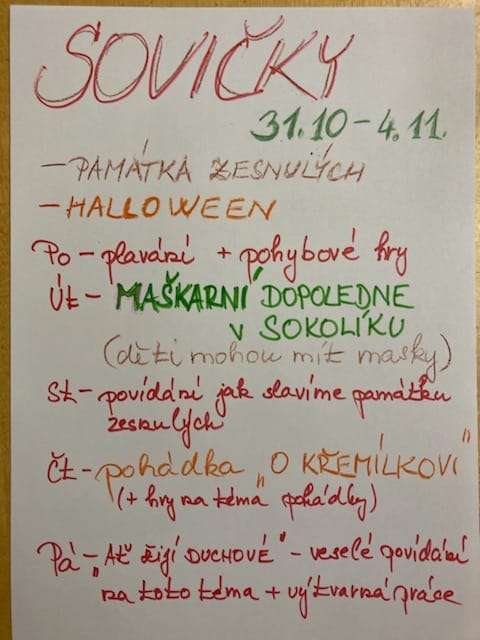 SOVIČKY
31.10 – 4.11.
– PAMÁTKA ZESNULÝCH
– HALLOWEEN
Po – plavání + pohybové hry
Út – MAŠKARNÍ DOPOLEDNE
V SOKOLÍKU
(děti mohou mít masky)
St – povídání jak slavíme památku
zesnulých
Čt – pohádka „O KŘEMÍLKOVI"
(+ hry na téma pohádky)
Pá – „Ať žijí DUCHOVÉ" – veselé povídání
na toto téma + výtvarná práce